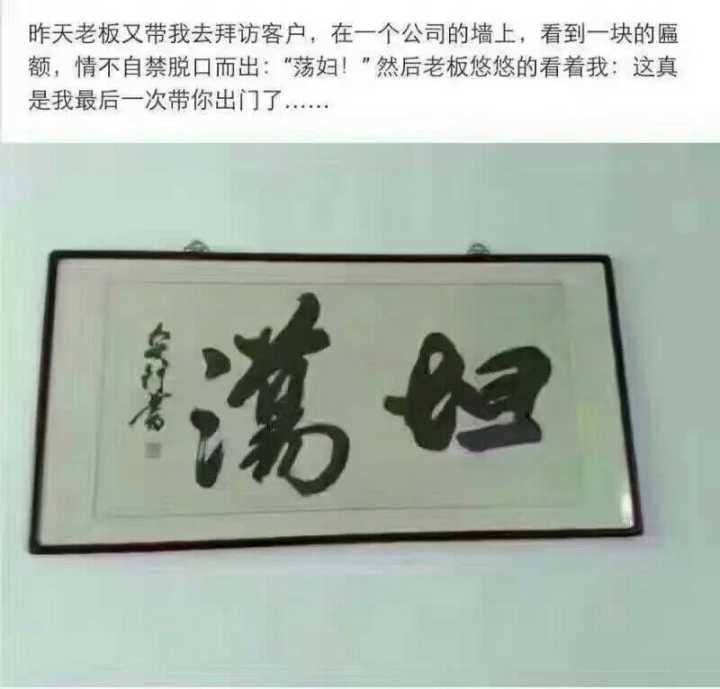 昨天老板又带我去拜访客户，在一个公司的墙上，看到一块的匾
额，情不自禁脱口而出：“荡妇！” 然后老板悠悠的看着我：这真
是我最后一次带你出门了……
坦蕩